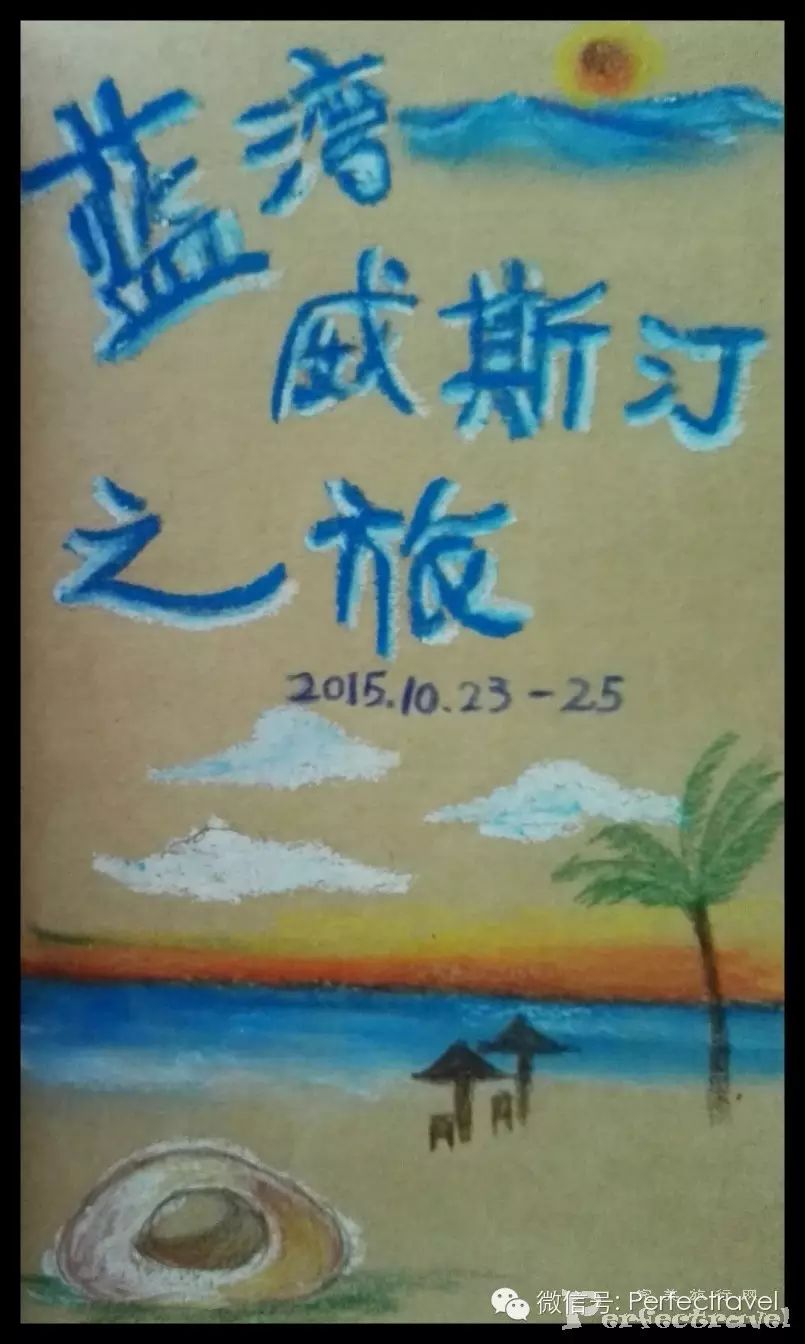 蓝湾
威斯汀
之旅
2015.10.23-25
微信号: Perfectravel
完美旅行网
Perfectravel